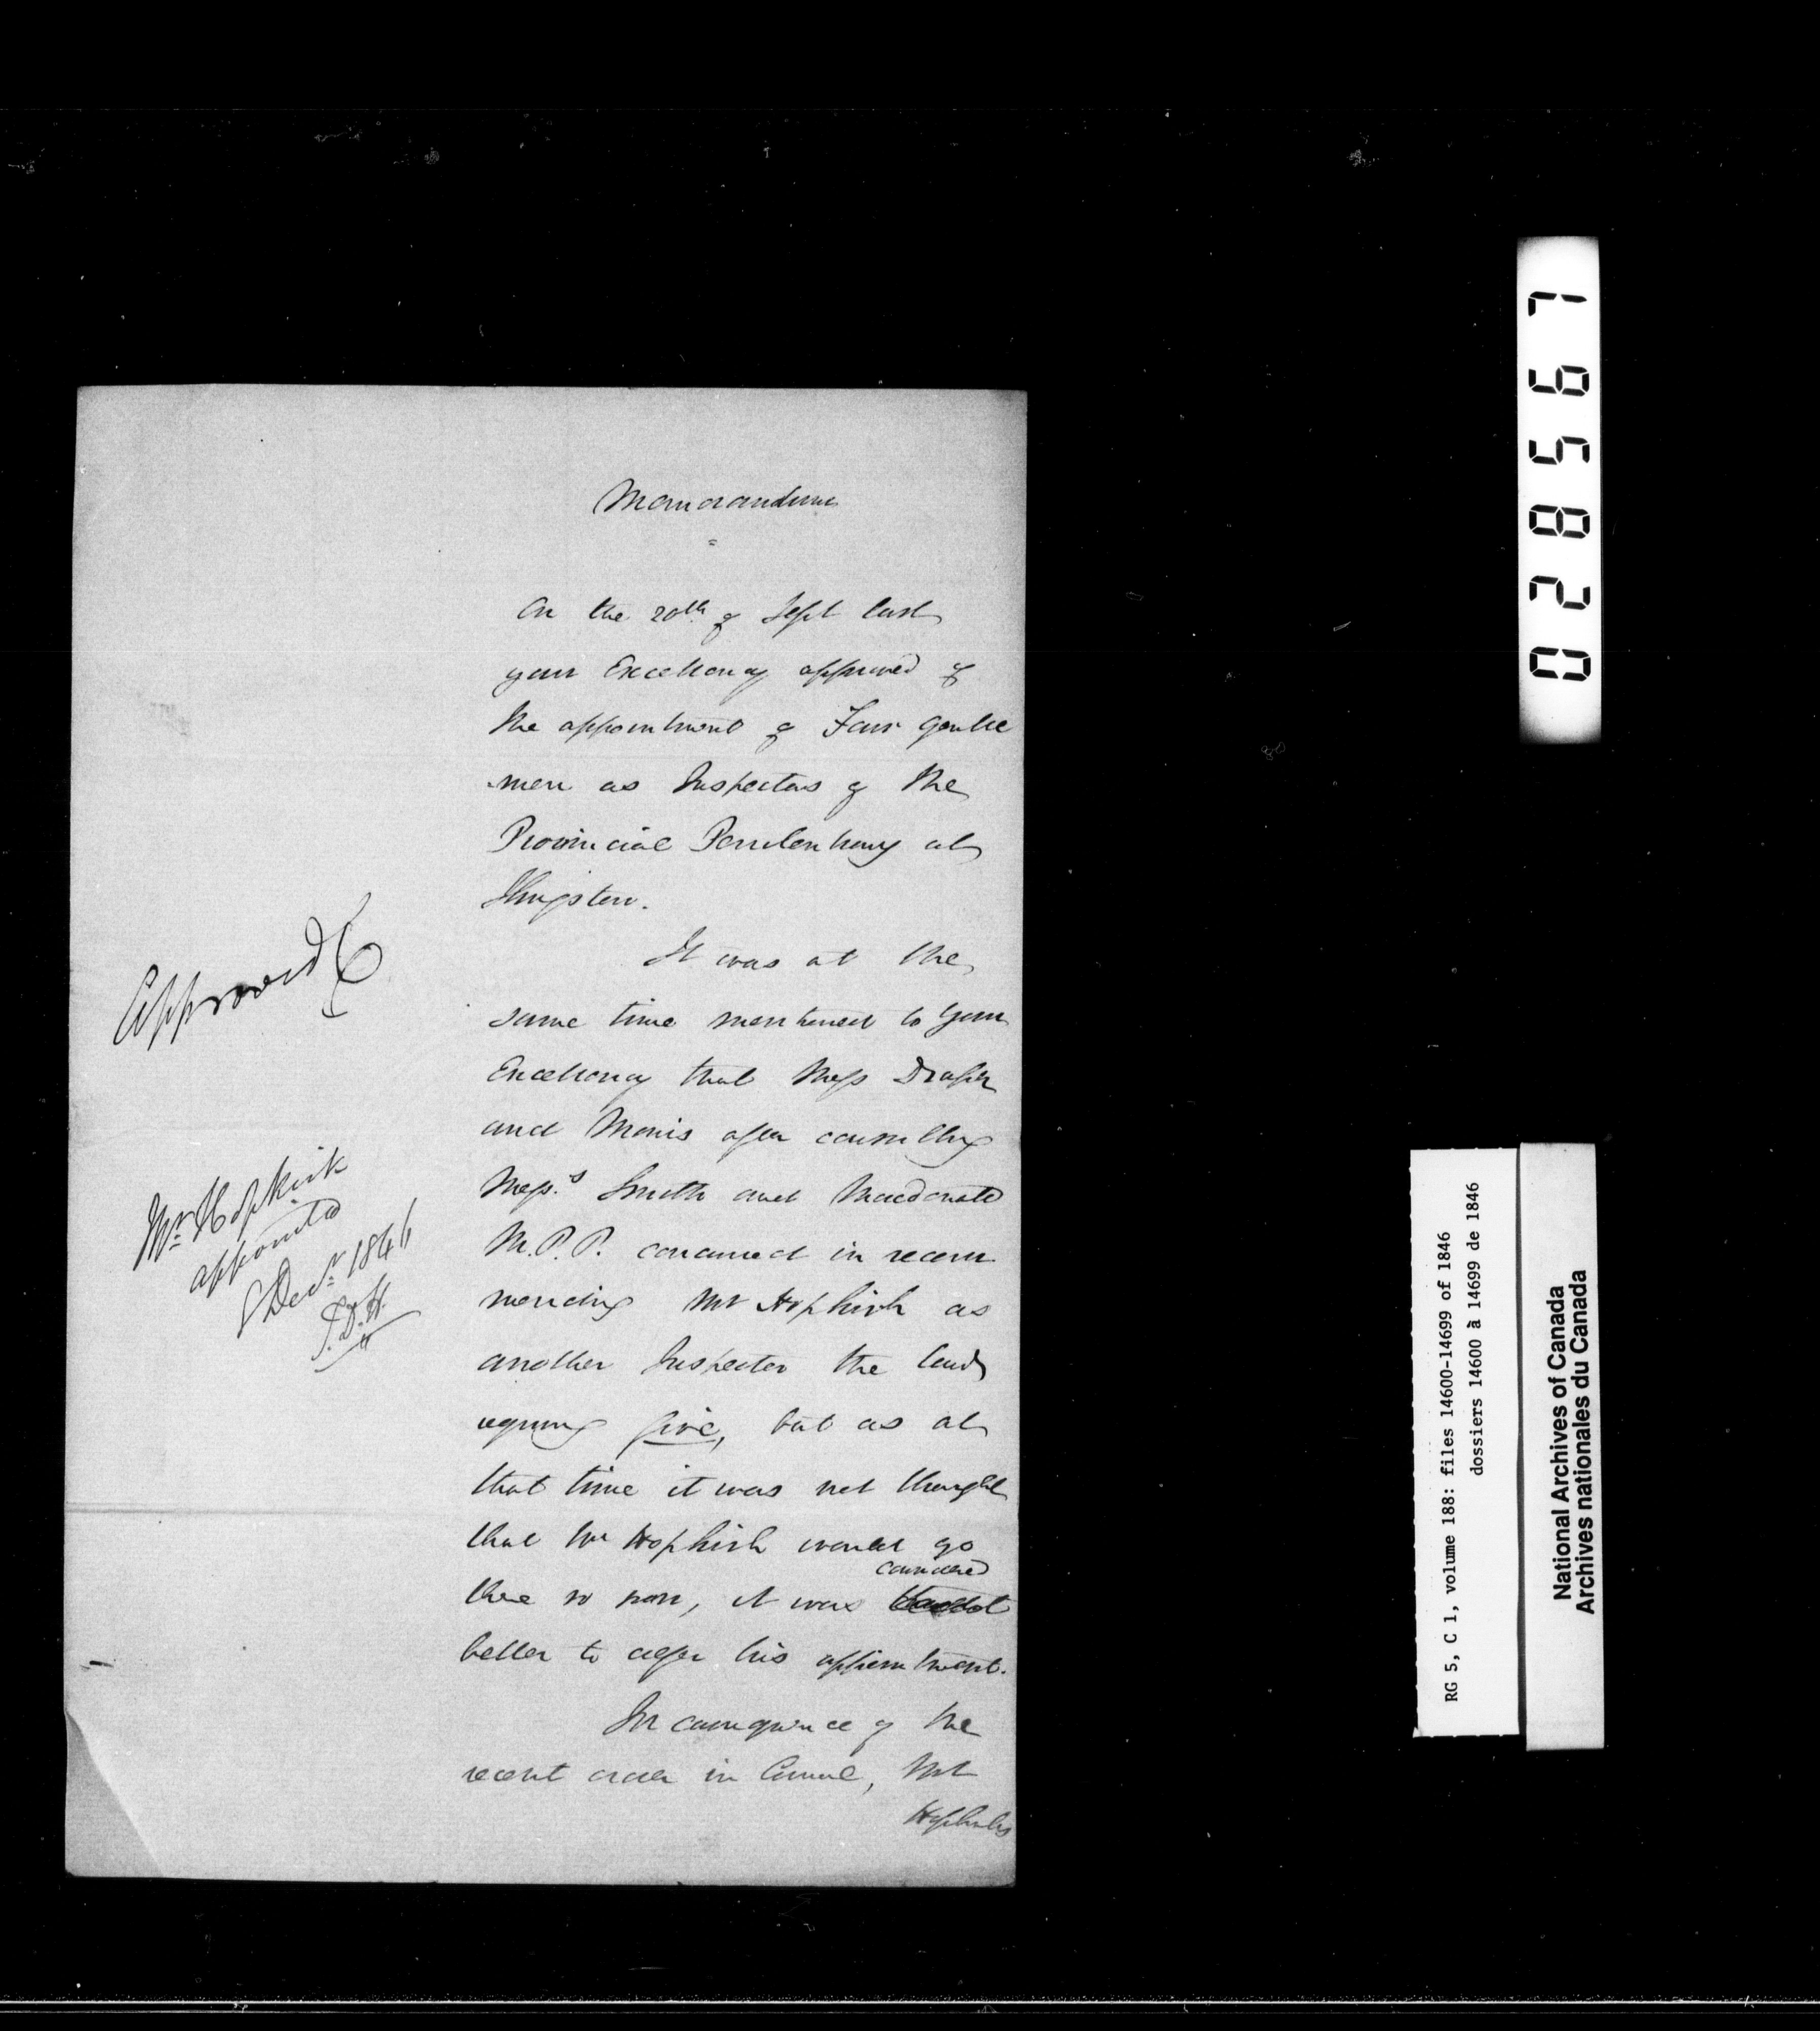 Memorandum
On the 20th of Sept last
your Excellency approved of
the appointment of Four gentle
men as Inspectors of the
Provincial Penitentiary at
Kingston.
It was at the
same time mentioned to Your
Excellency that Messs Draper
and Morris after consulting
Messs. Smith and Macdonald
M.P.P. concurred in recom
mending Mr Hopkirk as
another Inspector the law
requiring five, but as at
that time it was not thought
that Mr Hopkirk would go
considered
there so soon, it was
better to defer his appointment.
In consequence of the
recent order in Council, Mr
Hopkirks
Approved
Mr. Hopkirk
appointed
8 Decr. 1846
028567
RG 5, C 1, volume 188: files 14600-14699 of 1846
dossiers 14600 à 14699 de 1846
National Archives of Canada
Archives nationales du Canada